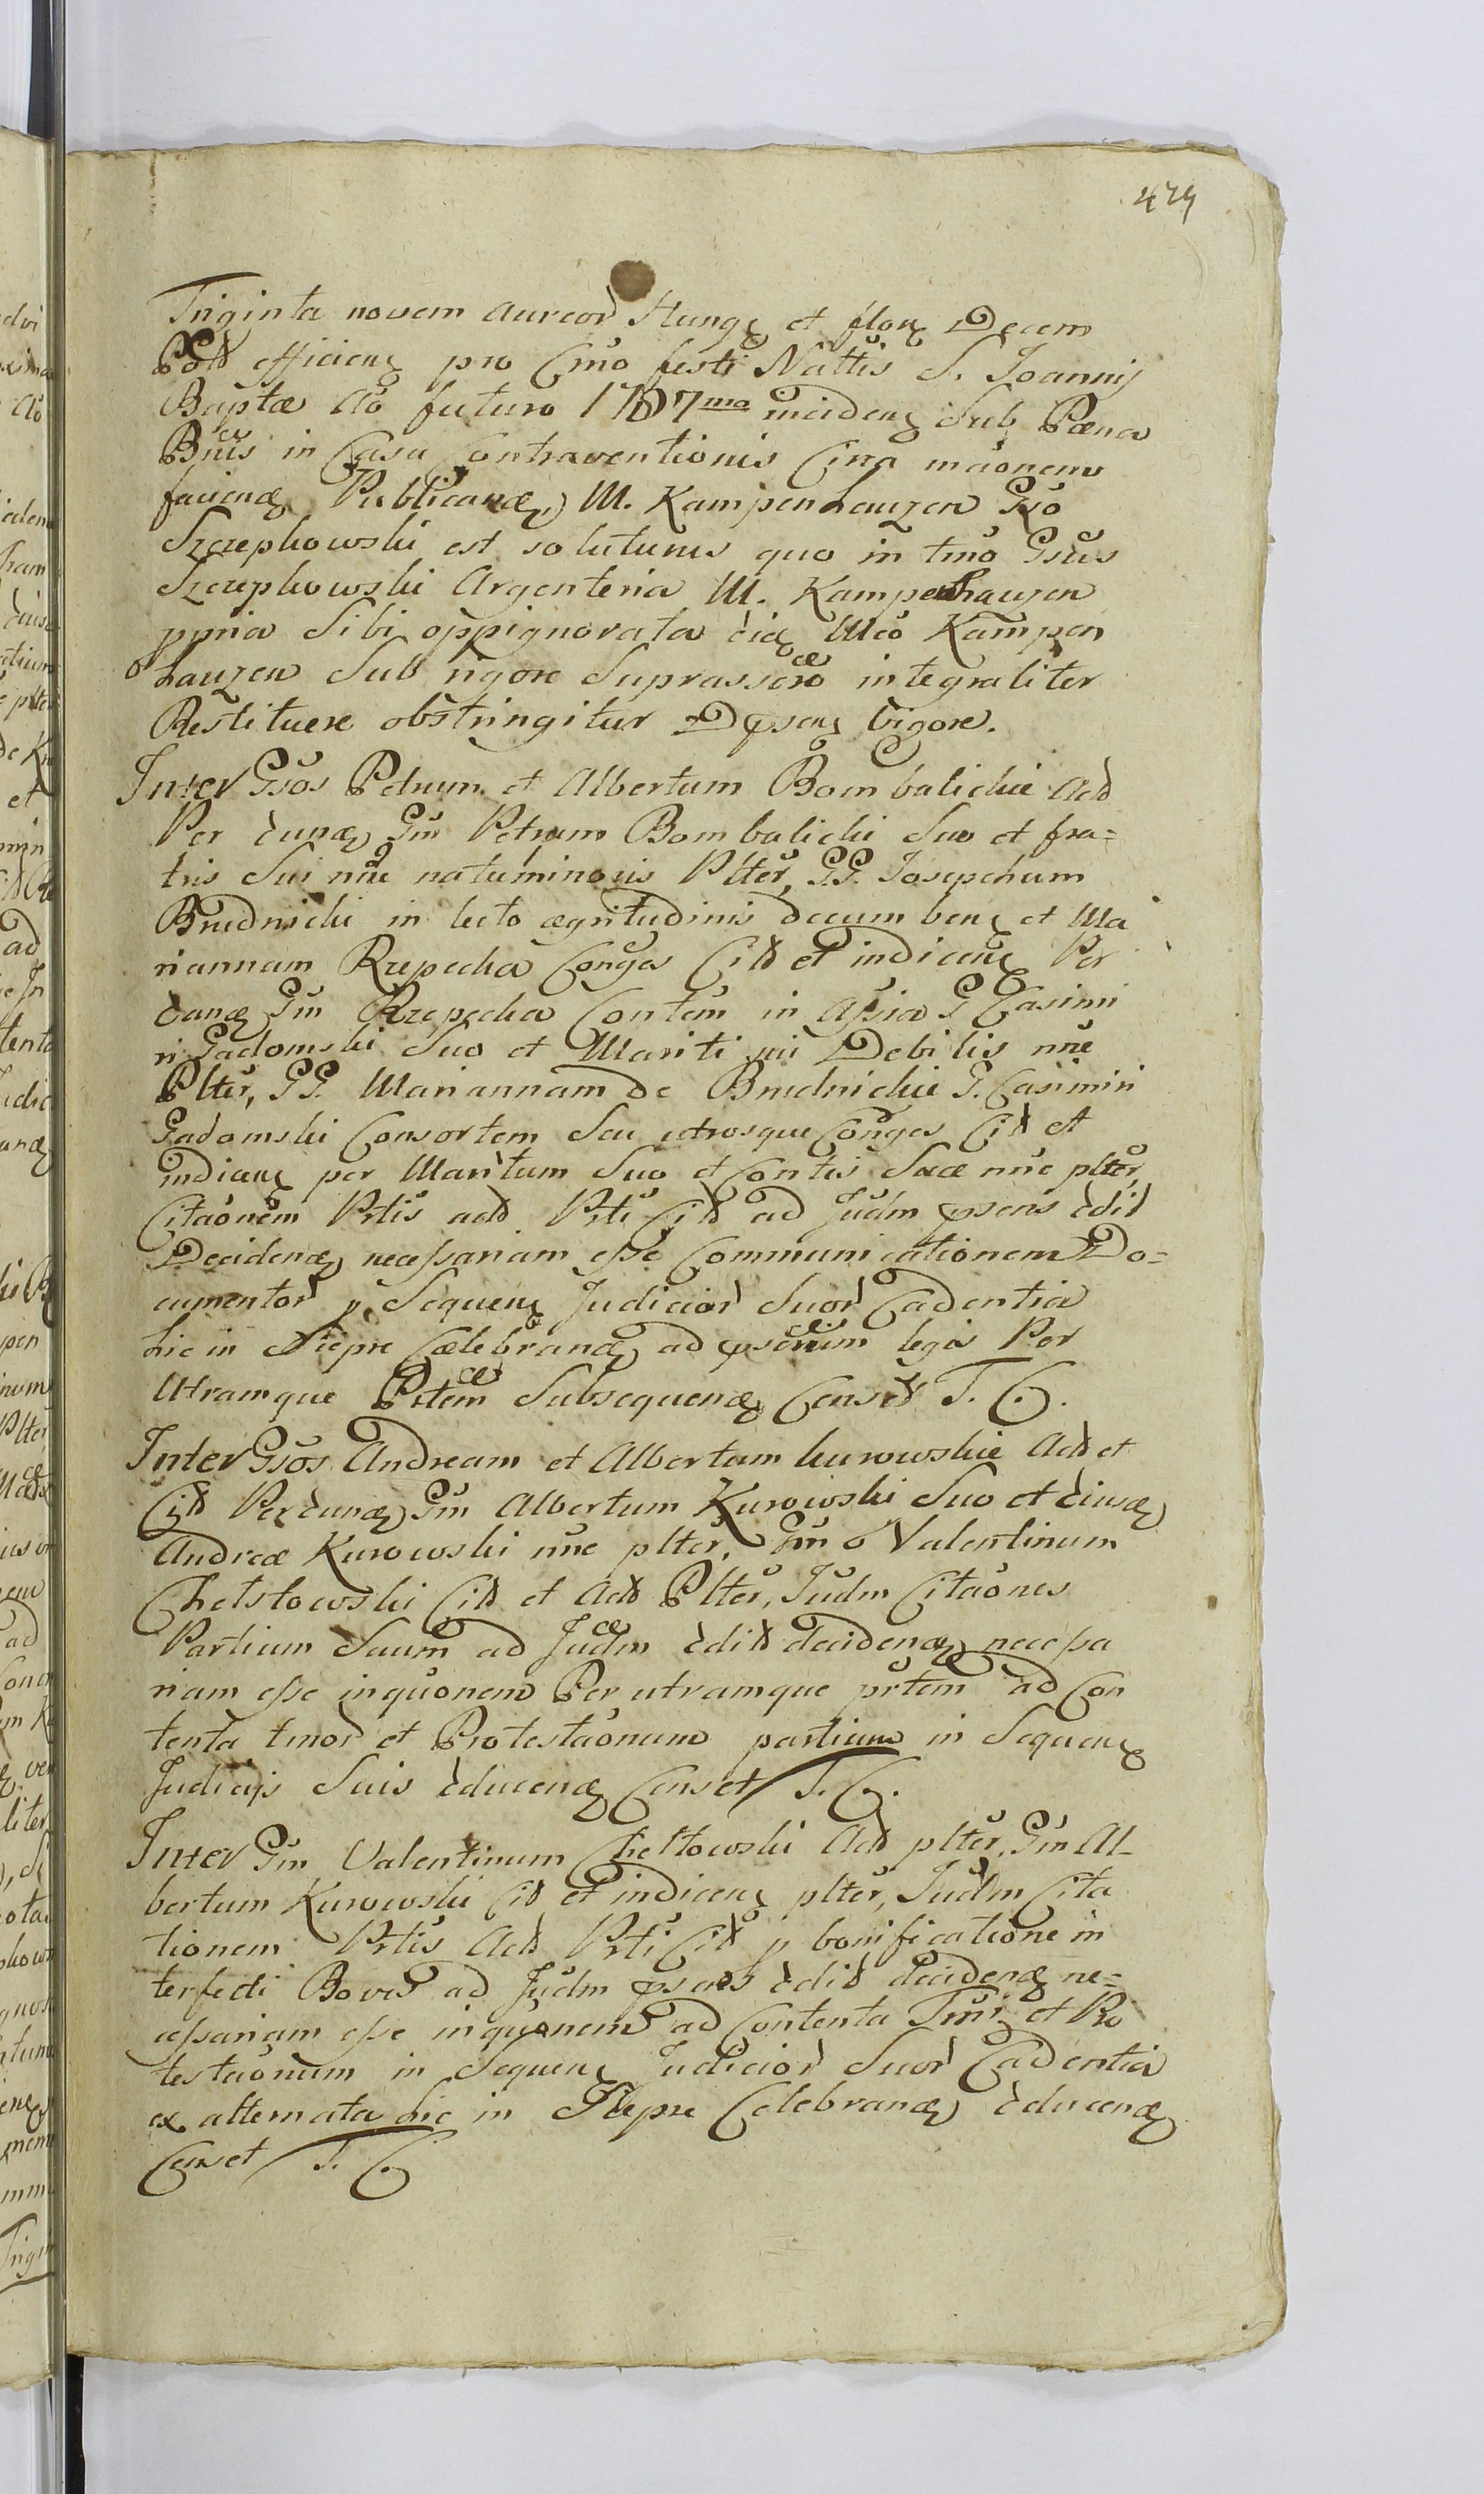 429
Triginta novem aureor̀ Hung et flor Decem
Pold efficieng pro Cr̃no festi Nattis S. Joannis
Baptæ Aõ futuro 1787mo incideng Sub Pæna
Bnis in Casu Contraventionis Circa mãonem
faciend Publicand, M. Kampenhauzen Gso
Szczepkowski est soluturus quo in tm̃o Gsus
Szczepkowski Argenteria M. Kampenhauzen
ppria Sibi oppignorata M͠co Kampen
hauzen Sub rigore Suprassero integraliter
Restituere obstringitur Dpseng Vigore.
Inter Gsos Petrum et Albertum Bombalickie Act
Per Gm Petrum Bombalicki Suo et fra=
tris Sui nñe natu minoris Plter, GG. Josephum
Brudnicki in lecto ægritudinis decumbeng et Ma
riannam Rzepecka Conges Cit et indiceng Per
Gm Rzepecka Contem in Assia G Casimi
ri Gadomski Suo et Mariti sui Debilis nñe
Plter, GG. Mariannam de Brudnickie G. Casimiri
Gadomski Consortem Seu utrosque Conges Cit et
indiceng per Maritum Suo et Contis Suæ nñe plter,
Citaõnem Prtis act Prti Cit ad Judm psens edit
Decidend necessariam esse Communicationem Do=
cumentor̀ p Sequeng Judicior̀ Suor̀ Cadentia
hic in Sierpc Cælebrand ad legis Per
Utramque Prtem Subsequend Censet T. C.
Inter Gsos Andream et Albertum Kurowskie Act et
Cit Per Gm Albertum Kurowski Suo et
Andreæ Kurowski nñe plter, Gm o Valentinum
Chelstowski Cit et Act Plter, Judm Citaõnes
Partium Suarum ad Judm edit decidend necessa
riam esse inquõnem Per utramque prtem ad Con
tenta tmor̀ et Protestaõnum partium in Sequeng
Judicijs Suis educend Censet T. C.
Inter Gm Valentinum Cheltowski Act plter, Gm Al-
bertum Kurowski Cit et indiceng plter, Judm Cita
tionem Prtis Act Prti Cit p bonificatione in
terfecti Bovis ad Judm psens edit decidend ne=
cessariam esse inquõnem ad Contenta Tmi et Pro
testaõnum in Sequeng Judicior̀ Suor̀ Cadentia
ex alternata hic in Sierpc Celebrand educend
Censet T. C.